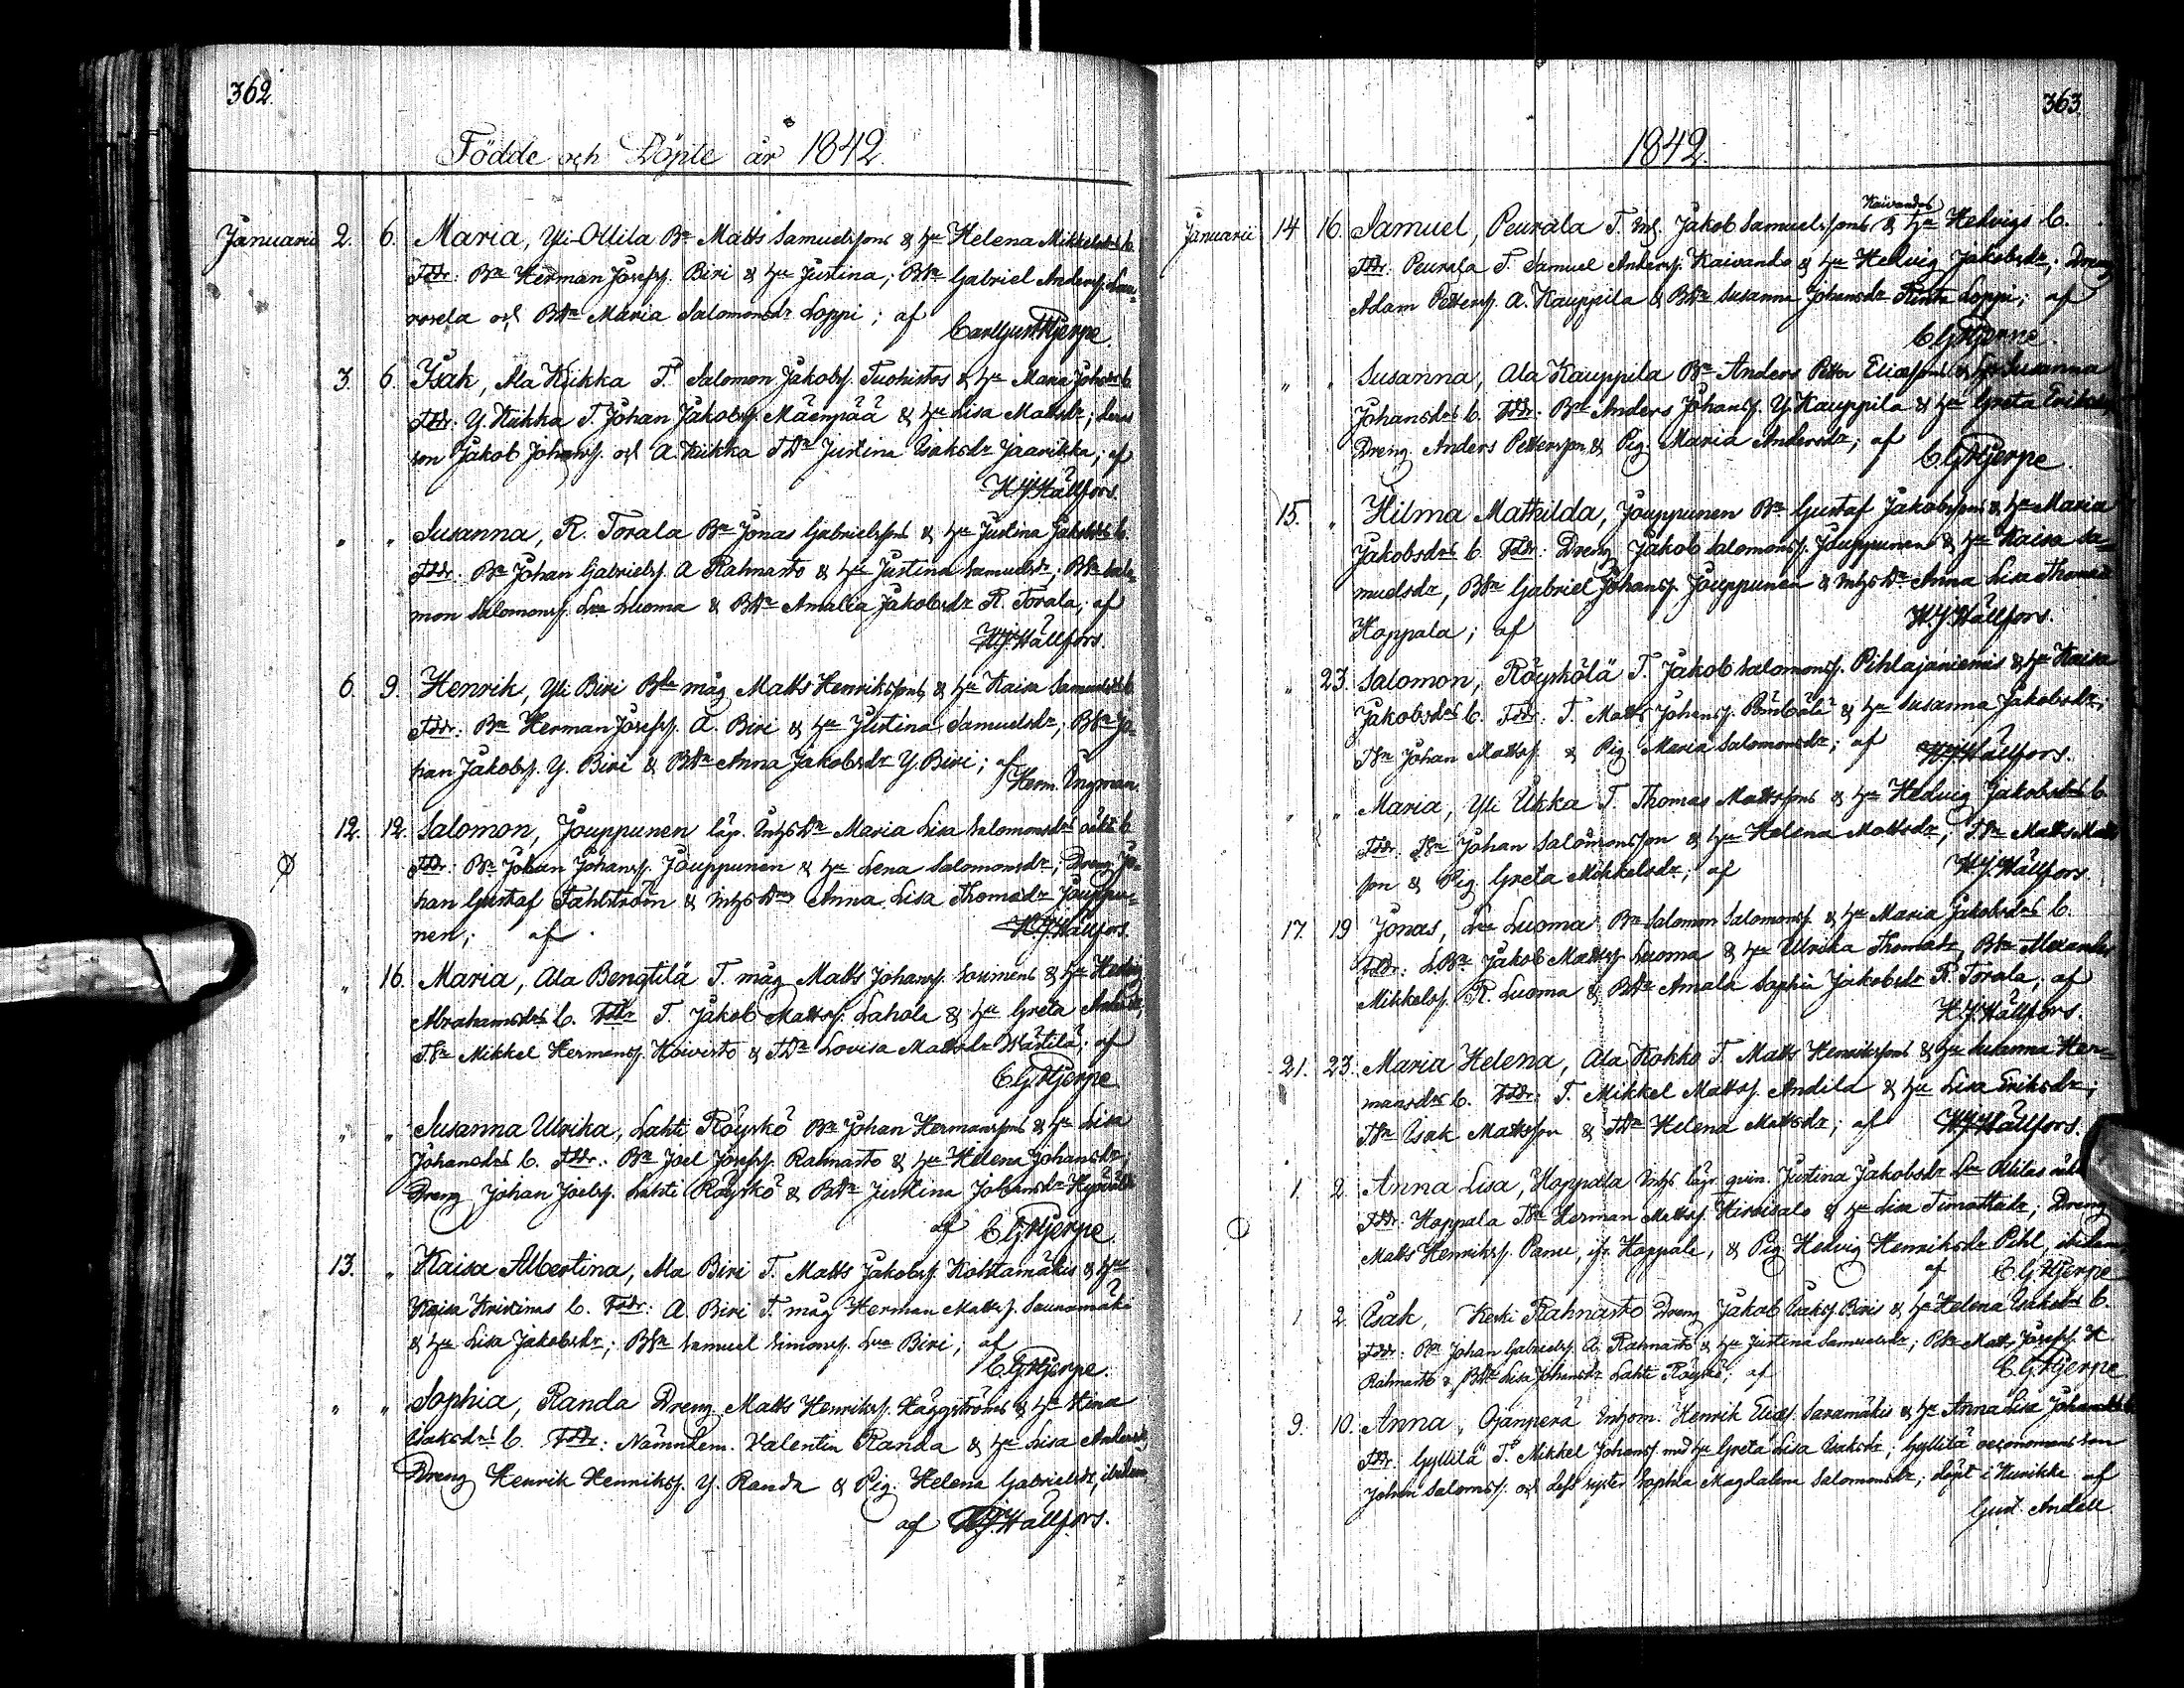 362.
Födde och Döpte år 1842.
Januarii 2. 6. Maria, Yli-Ollila Bn Matts Samuelssons & hu Helena Mikkelsdrs b.
Fddr: Bn Herman Josefss. Biri & hu Justina; BSn Gabriel Anderss. Lau-
rosela och BDr Maria Salomonsdr Loppi; af
Carl Gust. Hjerpe.
3. 6. Isak, Ala Kiikka T. Salomon Jakobss. Tuohistos & hu Maria Johsdrs b.
Fddr: Y. Kiikka T. Johan Jakobss. Mäenpää & hu Lisa Mattsdr; deras
son Jakob Johanss. och A. Kiikka TDr Justina Isaksdr Jaarikka; af
H.J. Hällfors.
" " Susanna, R. Torala Bn Jonas Gabrielssons & hu Justina Jakobsdrs b.
Fddr: Bn Johan Gabrielss. A Rahnasto & hu Justina Samuelsdr; BSn Salo-
mon Salomonss. Lra Luoma & BDr Amalia Jakobsdr R. Torala; af
H.J. Hällfors.
6. 9. Henrik, Yli Biri Bde måg Matts Henrikssons & hu Kaisa Samuelsdrs b.
Fddr: Bn Herman Josefss. A. Biri & hu Justina Samuelsdr; BSn Jo-
han Jakobss. Y. Biri & BDr Anna Jakobsdr Y. Biri; af
Herm. Ingman.
12. 12. Salomon, Jouppunen lägr. InhsDr Maria Lisa Salomonsdrs oäkta b.
Fddr: Bn Johan Johanss. Jouppunen & hu Lena Salomonsdr; Dreng Jo-
han Gustaf Fahlström & InhsDr Anna Lisa Thomasdr Jouppu-
nen; af
H.J. Hällfors.
" 16. Maria, Ala Bengtilä T. måg Matts Johanss. & hu Hedvig
Abrahamsdrs b. Fddr T. Jakob Mattss. Lahola & hu Greta
TSn Mikkel Hermanss. Koivisto & TDr Lovisa Mattsdr Wärtilä; af
C.G. Hjerpe
" " Susanna Ulrika, Lahti Röyskö Bn Johan Hermanssons & hu Lisa
Johansdrs b. Fddr: Bn Joel Josefss. Rahnasto & hu Helena Johansdr;
Dreng Johan Joelss. Lahti Röyskö & BDr Justina Johansdr
af C.G. Hjerpe.
13. " Kaisa Albertina, Ala Biri T. Matts Jakobss. Kohtamäkis & hu
Kaisa Kristinas b. Fddr: A. Biri T. måg Herman Mattss. Saunamäki
& hu Lisa Jakobsdr; BSn Samuel Simonss. Lra Biri; af
C.G. Hjerpe.
" " Sophia, Randa Dreng Matts Henrikss. Häggströms & hu Hena
Isaksdrs b. Fddr: Nämndem. Valentin Randa & hu Lisa Andersdr;
Dreng Henrik Henrikss. Y. Randa & Pig. Helena Gabrielsdr, ibidem
af H.J. Hällfors.
363.
1842.
Januarii 14 16. Samuel, Peurala T. Jakob Samuelssons Kaivandos & hu Hedvigs b.
Fddr: Peurala T. Samuel Anderss. Kaivando & hu Hedvig Jakobsdr; Dreng
Adam Petterss. A. Kauppila & BDr Susanna Johansdr Rinta Loppi; af
C.G. Hjerpe.
" " Susanna, Ala Kauppila Bn Anders Petter Eliassons & hu Susanna
Johansdrs b. Fddr: Bn Anders Johanss. Y. Kauppila & hu Greta Eriksdr
Dreng Anders Pettersson & Pig. Maria Andersdr; af
C.G. Hjerpe.
15. " Hilma Mathilda, Jouppunen Bn Gustaf Jakobssons & hu Maria
Jakobsdrs b. Fddr: Dreng Jakob Salomonss. Jouppunen & hu Kaisa Sa-
muelsdr, BSn Gabriel Johanss. Jouppunen & InhsDr Anna Lisa Thomasdr
Hoppala; af
H.J. Hällfors.
" 23. Salomon, Röyskölä T. Jakob Salomonss. Pihlajaniemis & hu Kaisa
Jakobsdrs b. Fddr: T. Matts Johanss. & hu Susanna Jakobsdr;
TSn Johan Mattss. & Pig. Maria Salomonsdr; af
H.J. Hällfors.
" " Maria, Yli Ukka T. Thomas Mattssons & hu Hedvig Jakobsdrs b.
Fddr: TSn Johan Salomonsson & hu Helena Mattsdr; TSn Matts Matts-
son & Pig. Greta Mikkelsdr; af
H.J. Hällfors
17. 19 Jonas, Lra Luoma Bn Salomon Salomonss. & hu Maria Jakobsdrs b.
Fddr: LBn Jakob Mattss. Luoma & hu Ulrika Thomasdr, BSn Alexander
Mikkelss. R. Luoma & BDr Amala Sophia Jakobsdr R. Torala; af
H.J. Hällfors.
21. 23. Maria Helena, Ala Kokko T. Matts Henrikssons & hu Susanna Her-
mansdrs b. Fddr: T. Mikkel Mattss. Andila & hu Lisa Eriksdr;
TSn Isak Mattsson & TDr Helena Mattsdr; af H.J. Hällfors.
1. 2. Anna Lisa, Hoppala Inhs. lägr. qvin. Justina Jakobsdr Lra Ollilas oäkta
Fddr: Hoppala TSn Herman Mattss. Hirvisalo & hu Lisa Timotheidr; Dreng
Matts Henrikss. Panu, ifr. Hoppala, & Pig Hedvig Henriksdr Pihl, ibidem
af C.G. Hjerpe
1 2. Isak, Keski Rahnasto Dreng Jakob Isakss. Biris & hu Helena Isaksdrs b.
Fddr: Bn Johan Gabrielss. A. Rahnasto & hu Justina Samuelsdr; BSn Matts Josefss. K
Rahnasto & BDr Lisa Johansdr Lahti Röyskö; af C.G. Hjerpe
9. 10. Anna, Ojanperä Inhom. Henrik Eliass. Saramäkis & hu Anna Lisa Johansdrs b
Fddr. Gyllilä T. Mikkel Johanss. med hu Greta Lisa Isaksdr; Gyllilä oeconomens son
Johan Salomss. och dess syster Sophia Magdalena Salomonsdr; döpt i Kurikka af
Gust. Andell